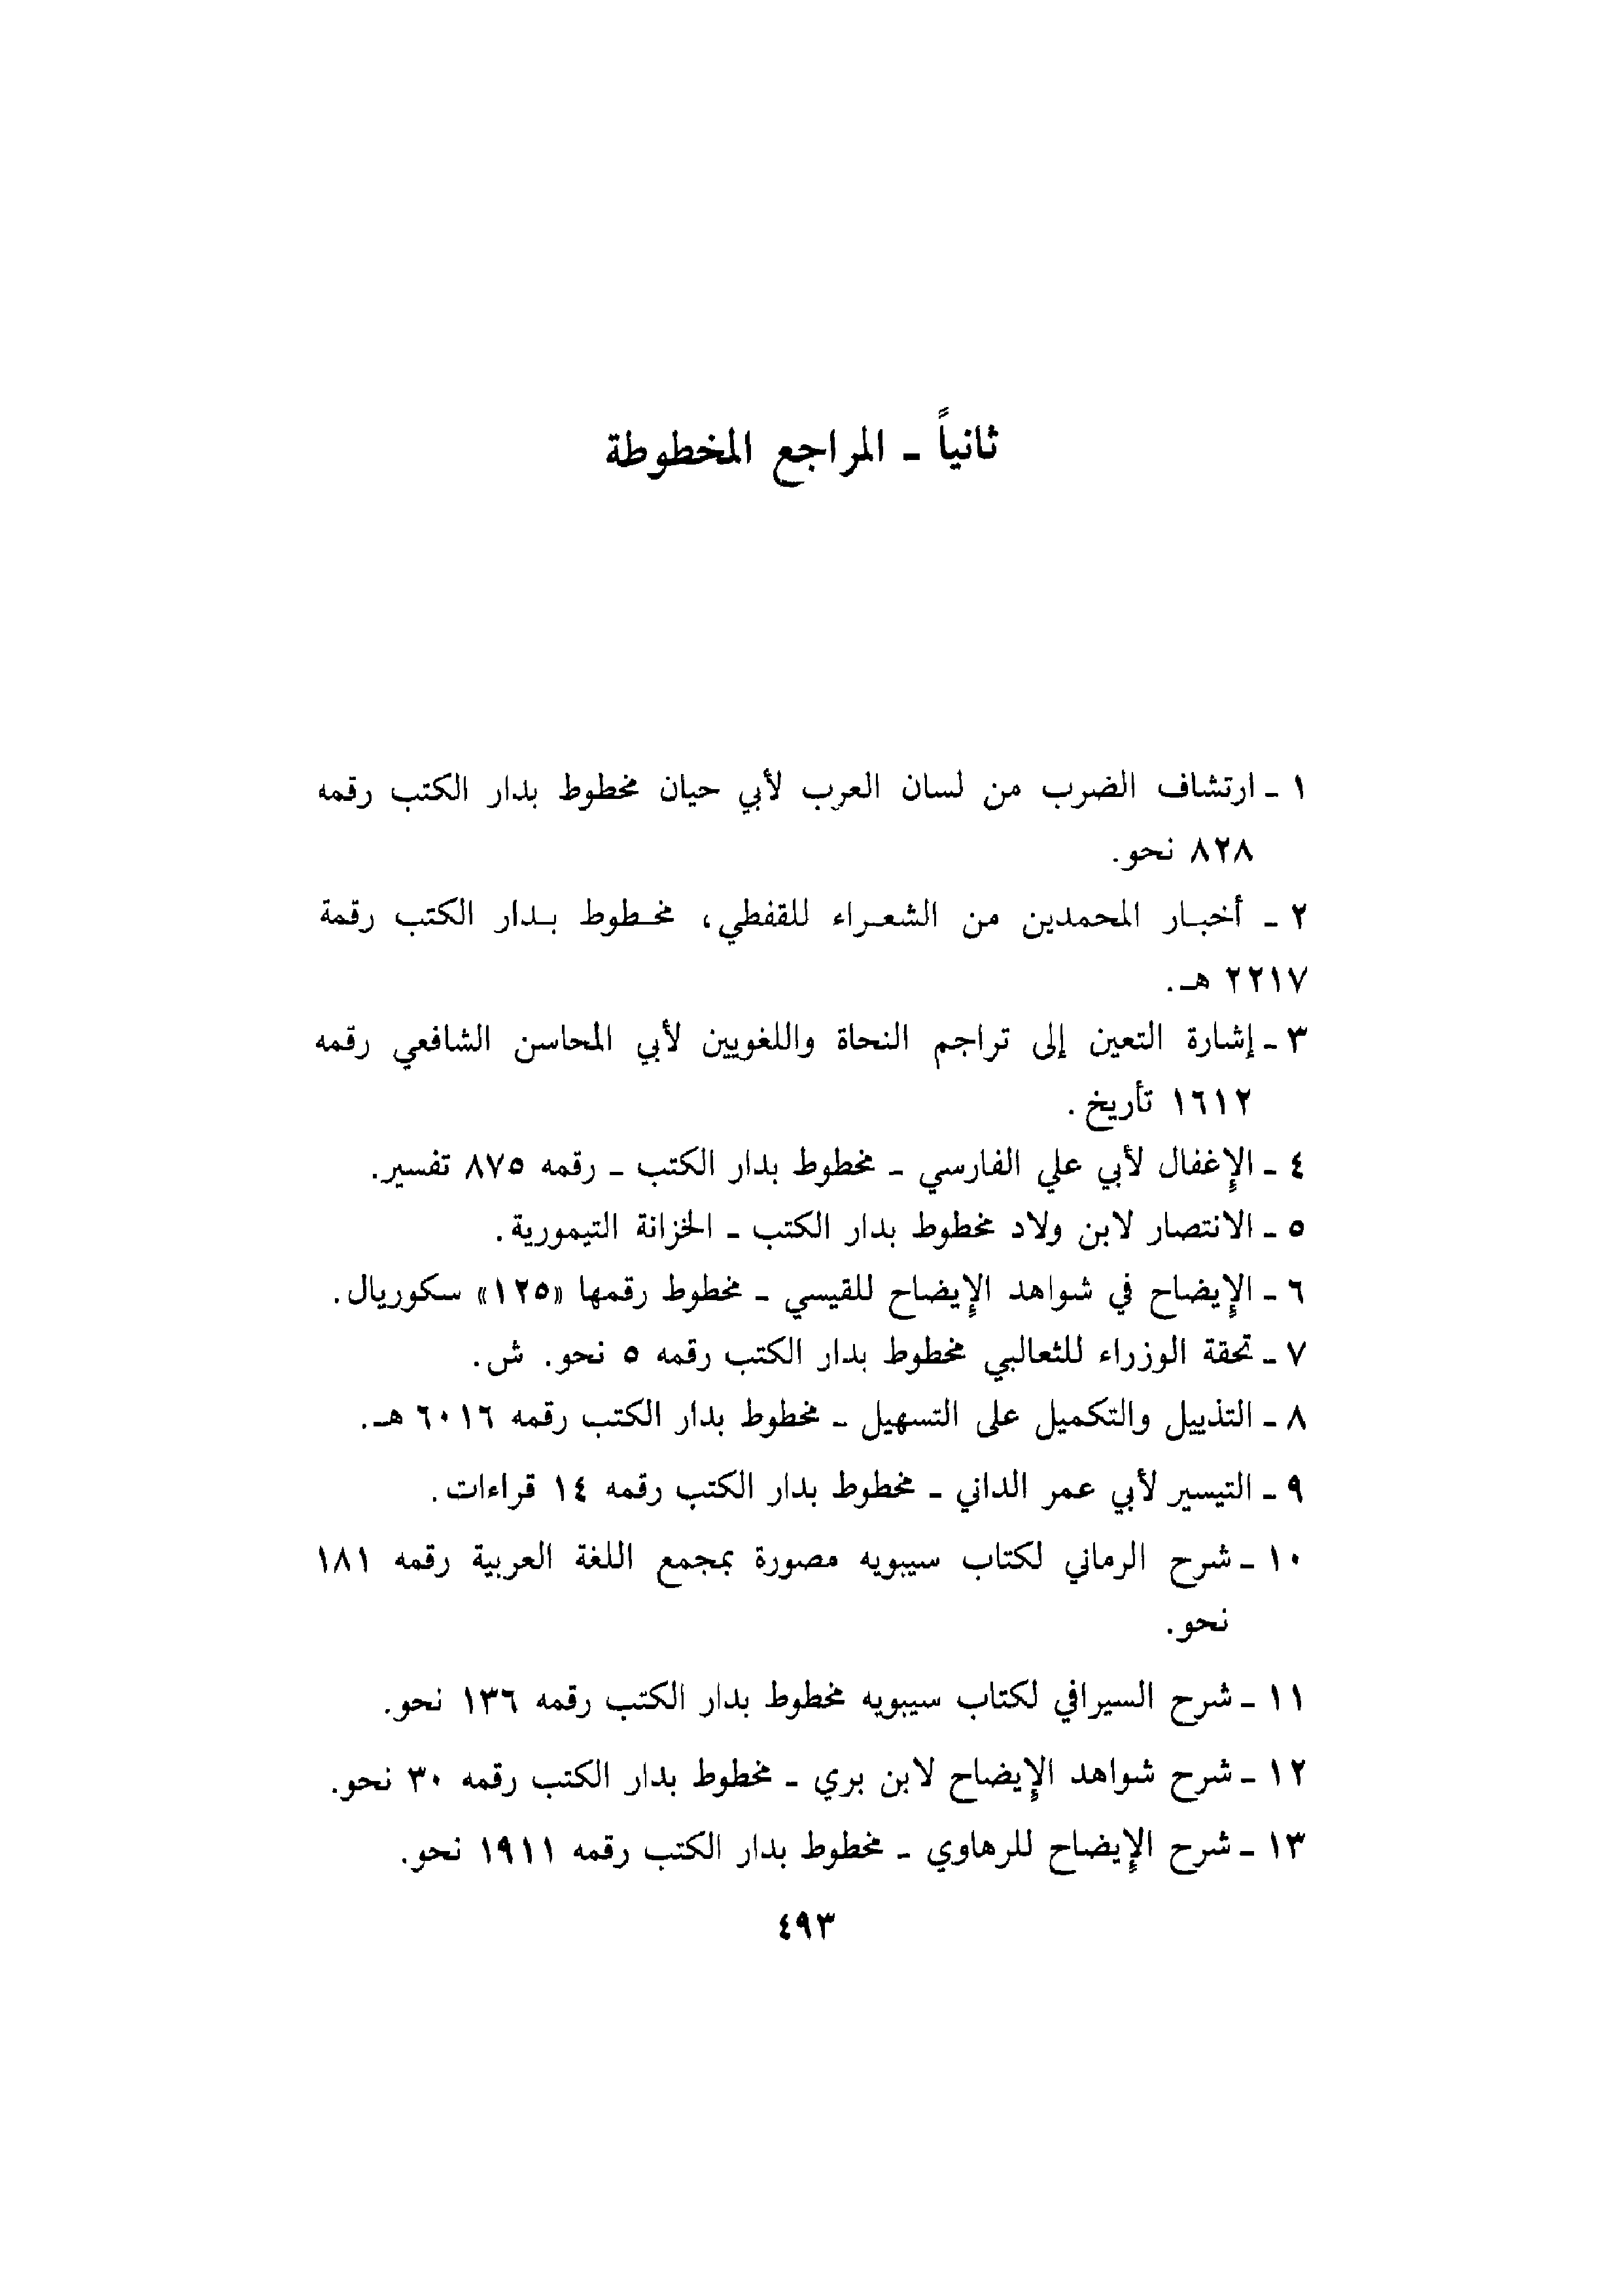 ثانياً - المراجع المخطوطة
١ - ارتشاف الضرب من لسان العرب لأبي حيان مخطوط بدار الكتب رقمه
٨٢٨ نحو.
٢ - أخبار المحمدين من الشعراء للقفطي، مخطوط بدار الكتب رقمة
٢٢١٧ هـ.
٣ - إشارة التعين إلى تراجم النحاة واللغويين لأبي المحاسن الشافعي رقمه
١٦١٢ تأريخ.
٤ - الإغفال لأبي علي الفارسي - مخطوط بدار الكتب - رقمه ٨٧٥ تفسير.
٥ - الانتصار لابن ولاد مخطوط بدار الكتب - الخزانة التيمورية.
٦ - الإيضاح في شواهد الإيضاح للقيسي - مخطوط رقمها «١٢٥» سكوريال.
٧ - تحقة الوزراء للثعالبي مخطوط بدار الكتب رقمه ٥ نحو. ش.
٨ - التذييل والتكميل على التسهيل - مخطوط بدار الكتب رقمه ٦٠١٦ هـ.
٩ - التيسير لأبي عمر الداني - مخطوط بدار الكتب رقمه ١٤ قراءات.
١٠ - شرح الرماني لكتاب سيبويه مصورة بمجمع اللغة العربية رقمه ١٨١
نحو.
١١ - شرح السيرافي لكتاب سيبويه مخطوط بدار الكتب رقمه ١٣٦ نحو.
١٢ - شرح شواهد الإيضاح لابن بري - مخطوط بدار الكتب رقمه ٣٠ نحو.
١٣ - شرح الإيضاح للرهاوي - مخطوط بدار الكتب رقمه ١٩١١ نحو.
٤٩٣